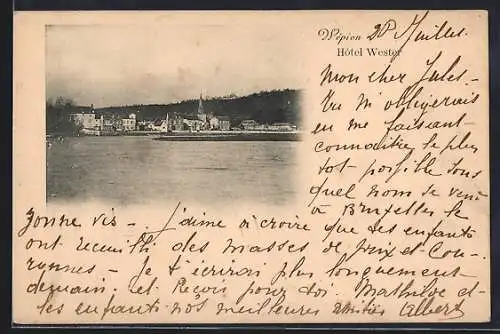 Wépion 20 Juillet
Hôtel Wester
Mon cher Jules –
Tu m'obligerais
en me faisant
connaître le plus
tôt possible sous
quel nom se vend
à Bruxelles le
Jenne vis – J'aime à croire que les enfants
ont recueilli des masses de prix et Cou-
ronnes – Je t'écrirai plus longuement
demain. et Reçois pour toi. Mathilde et
les enfants nos meilleures Amitiés Albert